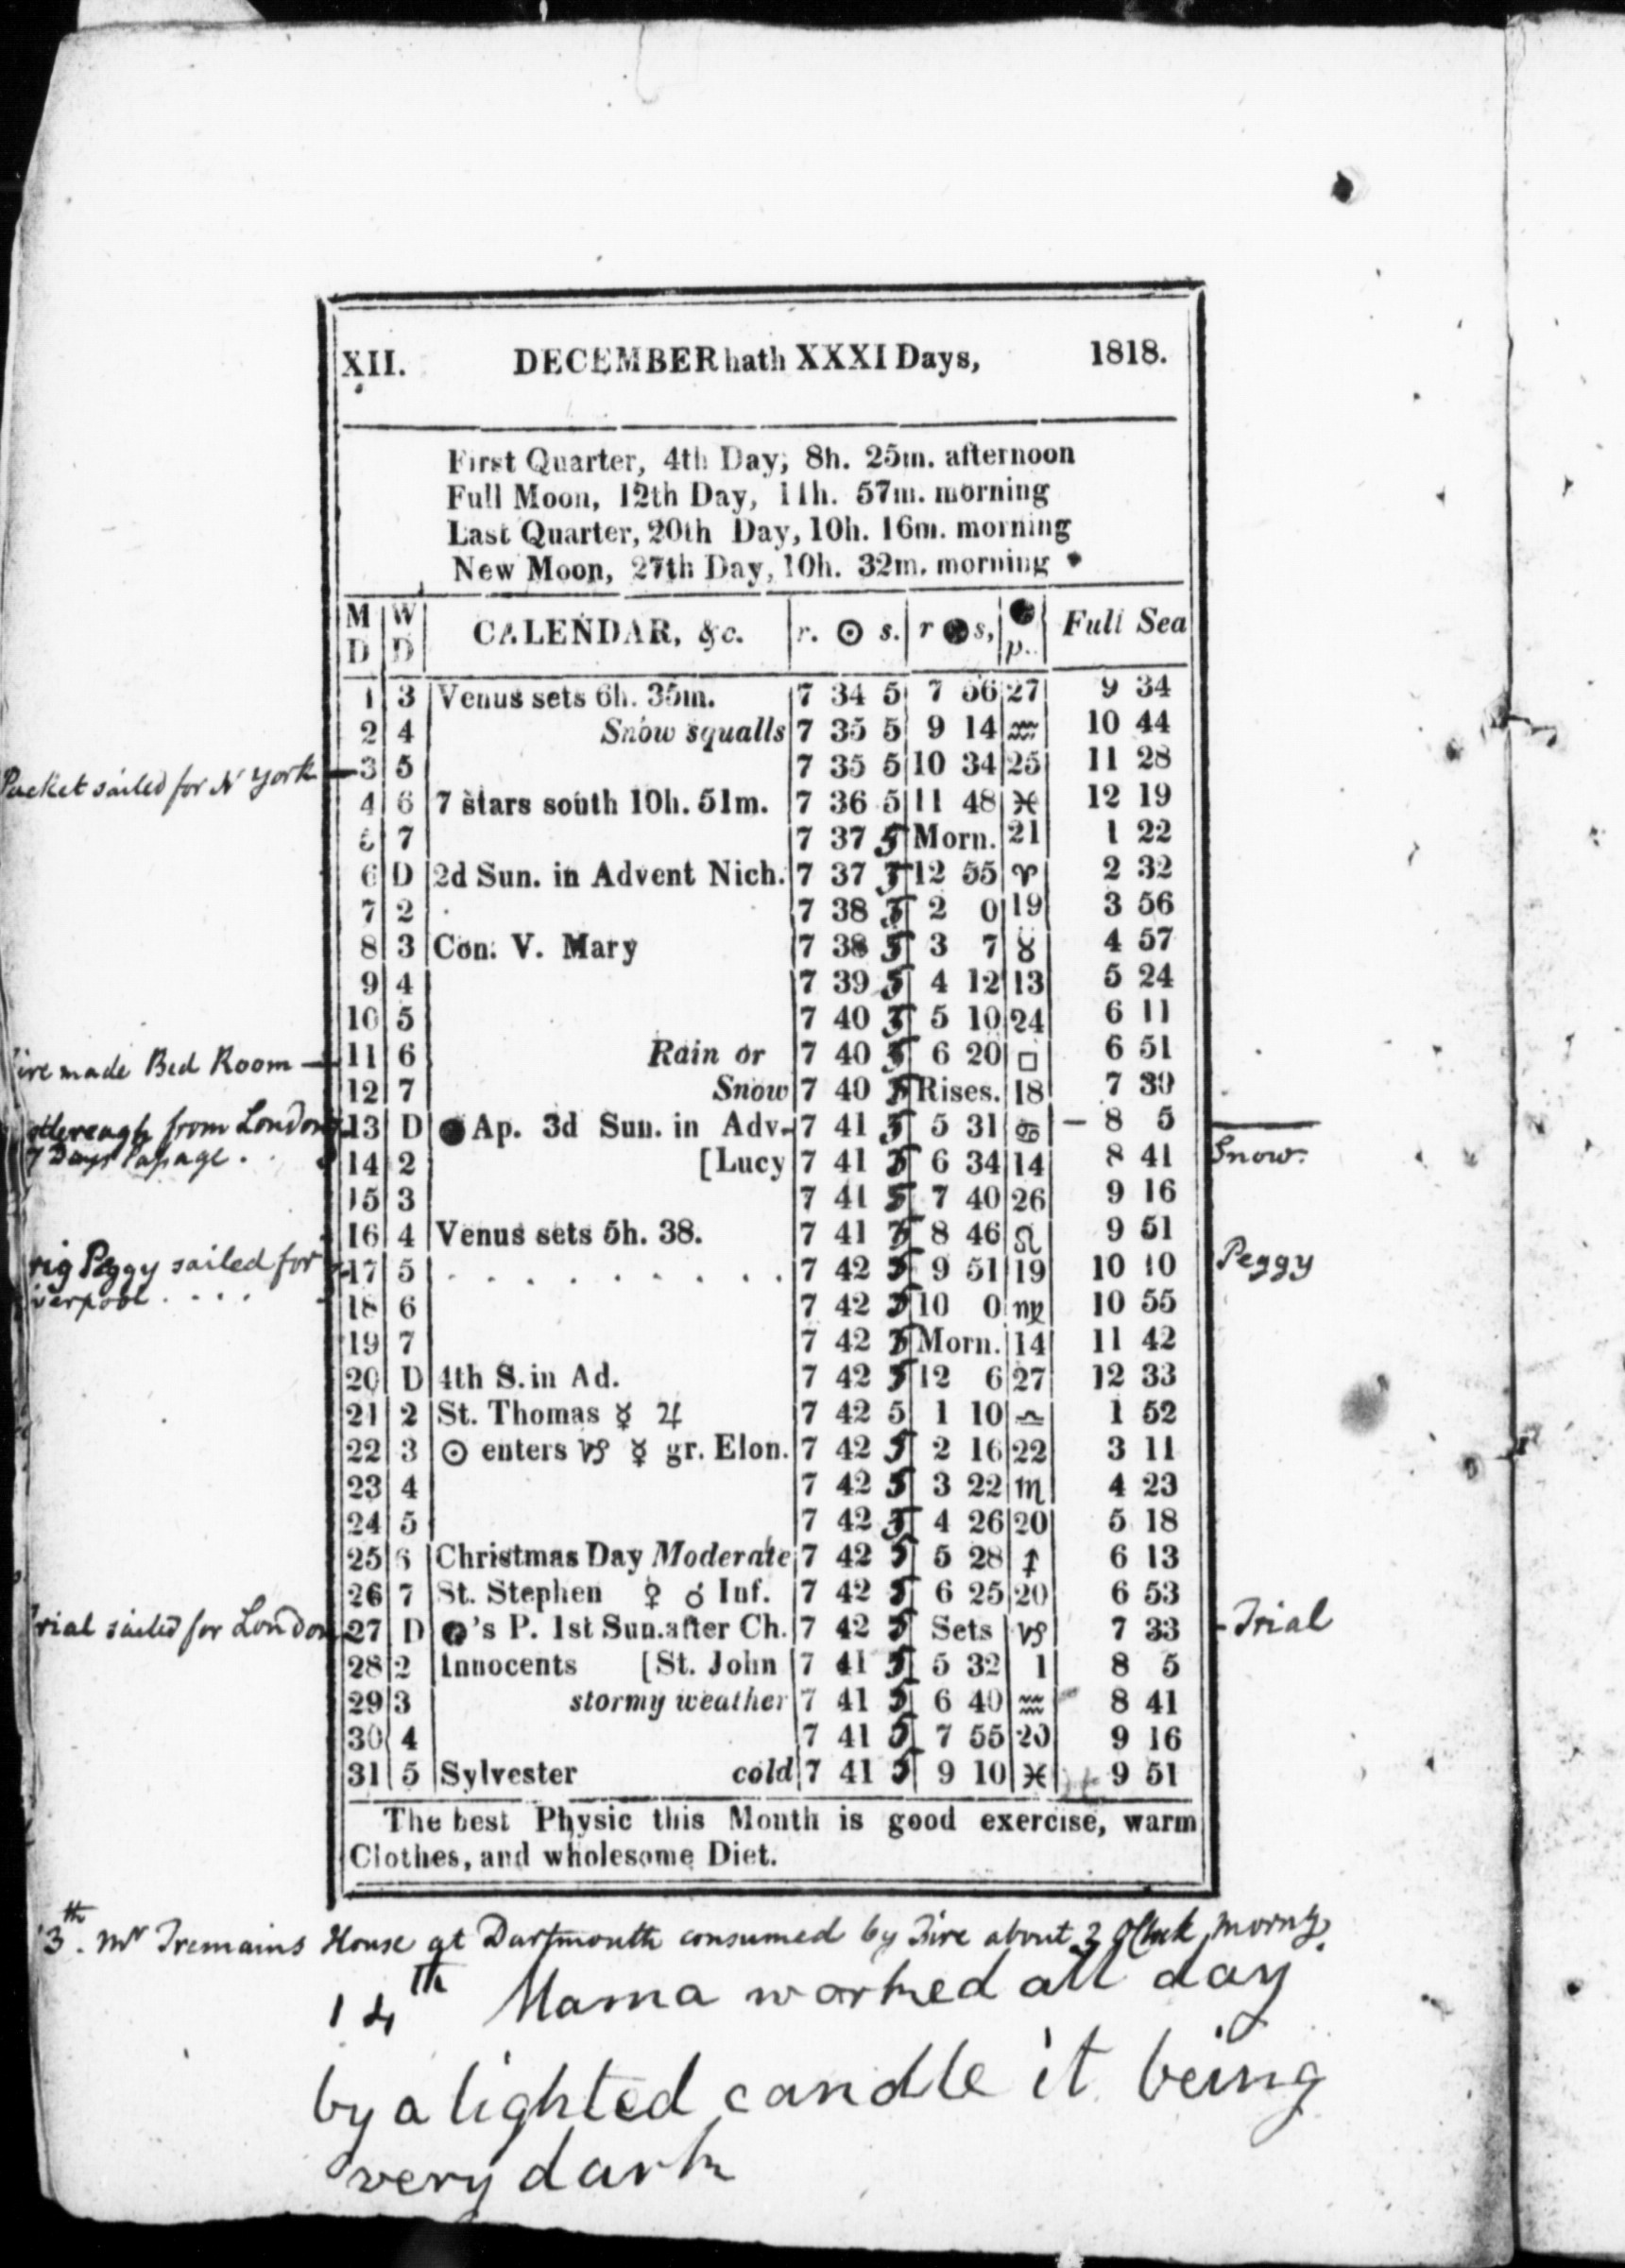 XII. DECEMBER hath XXXI Days, 1818.
First Quarter, 4th Day, 8h. 25m. afternoon
Full Moon, 12th Day, 11h. 57m. morning
Last Quarter, 20th Day, 10h. 16m. morning
New Moon, 27th Day, 10h. 32m. morning
M D W D CALENDAR, &c. r. ☉ s. r ● s, ● p. Full Sea
1 3 Venus sets 6h. 35m. 7 34 5 7 56 27 9 34
2 4 Snow squalls 7 35 5 9 14 ♒ 10 44
Packet sailed for N York — 3 5 7 35 5 10 34 25 11 28
4 6 7 stars south 10h. 51m. 7 36 5 11 48 ♓ 12 19
5 7 7 37 5 Morn. 21 1 22
6 D 2d Sun. in Advent Nich. 7 37 5 12 55 ♈ 2 32
7 2 7 38 5 2 0 19 3 56
8 3 Con. V. Mary 7 38 5 3 7 ♉ 4 57
9 4 7 39 5 4 12 13 5 24
10 5 7 40 5 5 10 24 6 11
made Bed Room — 11 6 Rain or 7 40 5 6 20 □ 6 51
12 7 Snow 7 40 5 Rises. 18 7 39
from London 13 D ● Ap. 3d Sun. in Adv- 7 41 5 5 31 ♋ – 8 5
7 Days Passage . . 14 2 [Lucy 7 41 5 6 34 14 8 41 Snow.
15 3 7 41 5 7 40 26 9 16
16 4 Venus sets 5h. 38. 7 41 5 8 46 ♌ 9 51
rig Peggy sailed for 17 5 . . . . . . . . . . 7 42 5 9 51 19 10 10 Peggy
iverpool . . . . 18 6 7 42 5 10 0 ♍ 10 55
19 7 7 42 5 Morn. 14 11 42
20 D 4th S. in Ad. 7 42 5 12 6 27 12 33
21 2 St. Thomas ☿ ♃ 7 42 5 1 10 ♎ 1 52
22 3 ☉ enters ♑ ☿ gr. Elon. 7 42 5 2 16 22 3 11
23 4 7 42 5 3 22 ♏ 4 23
24 5 7 42 5 4 26 20 5 18
25 6 Christmas Day Moderate 7 42 5 5 28 ♐ 6 13
26 7 St. Stephen ♀ ☌ Inf. 7 42 5 6 25 20 6 53
rial sailed for London 27 D ●'s P. 1st Sun. after Ch. 7 42 5 Sets ♑ 7 33 - Trial
28 2 Innocents [St. John 7 41 5 5 32 1 8 5
29 3 stormy weather 7 41 5 6 40 ♒ 8 41
30 4 7 41 5 7 55 20 9 16
31 5 Sylvester cold 7 41 5 9 10 ♓ 9 51
The best Physic this Month is good exercise, warm
Clothes, and wholesome Diet.
13th. Mr Tremains House at Dartmouth consumed by Fire about 3 oClock morng.
14th Mama worked all day
by a lighted candle it being
very dark